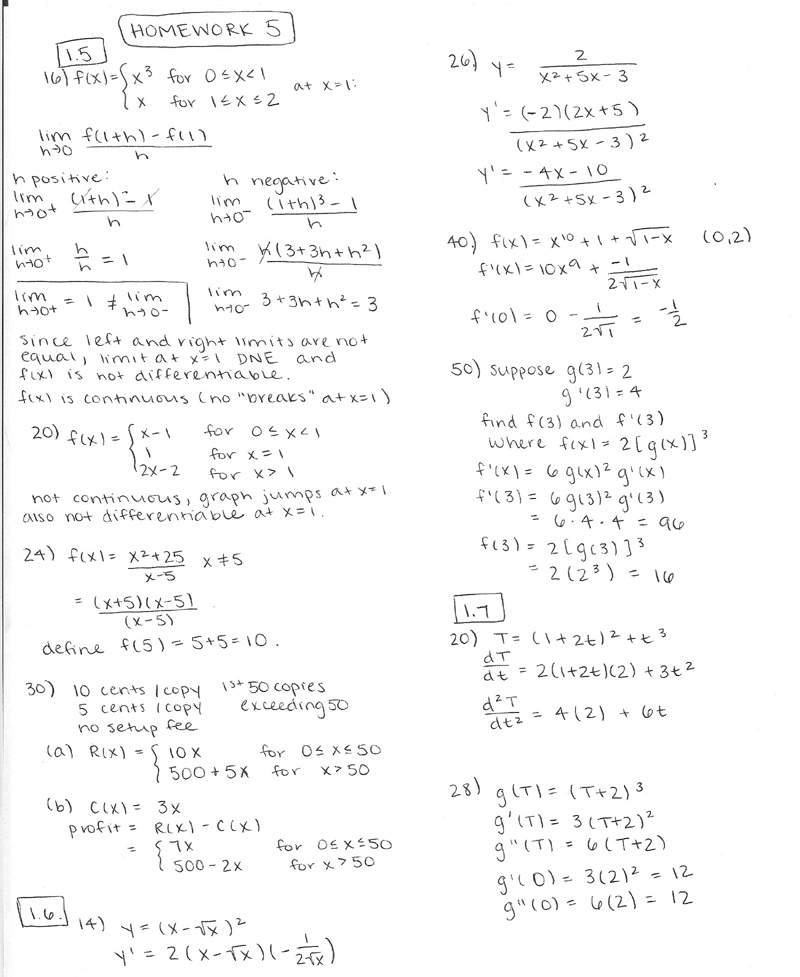 HOMEWORK 5
1.5
16) f(x) = { x³ for 0 ≤ x < 1
{ x for 1 ≤ x ≤ 2 at x=1:
lim h→0 f(1+h) - f(1) / h
h positive:
lim h→0⁺ (1+h) - 1 / h
lim h→0⁺ h/h = 1
lim h→0⁺ = 1 ≠ lim h→0⁻
h negative:
lim h→0⁻ (1+h)³ - 1 / h
lim h→0⁻ h(3+3h+h²) / h
lim h→0⁻ 3+3h+h² = 3
since left and right limits are not
equal, limit at x=1 DNE and
f(x) is not differentiable.
f(x) is continuous (no "breaks" at x=1)
20) f(x) = { x-1 for 0 ≤ x < 1
{ 1 for x = 1
{ 2x-2 for x > 1
not continuous, graph jumps at x=1
also not differentiable at x=1.
24) f(x) = x²+25 / x-5 x ≠ 5
= (x+5)(x-5) / (x-5)
define f(5) = 5+5=10.
30) 10 cents / copy 1st 50 copies
5 cents / copy exceeding 50
no setup fee
(a) R(x) = { 10x for 0 ≤ x ≤ 50
{ 500 + 5x for x > 50
(b) C(x) = 3x
profit = R(x) - C(x)
= { 7x for 0 ≤ x ≤ 50
{ 500 - 2x for x > 50
1.6.
14) y = (x - √x)²
y' = 2(x-√x)(-1/2√x)
26) y = 2 / x²+5x-3
y' = (-2)(2x+5) / (x²+5x-3)²
y' = -4x-10 / (x²+5x-3)²
40) f(x) = x¹⁰ + 1 + √1-x (0,2)
f'(x) = 10x⁹ + -1 / 2√1-x
f'(0) = 0 - 1 / 2√1 = -1/2
50) suppose g(3) = 2
g'(3) = 4
find f(3) and f'(3)
where f(x) = 2[g(x)]³
f'(x) = 6g(x)² g'(x)
f'(3) = 6g(3)² g'(3)
= 6·4·4 = 96
f(3) = 2[g(3)]³
= 2(2³) = 16
1.7
20) T = (1+2t)² + t³
dT/dt = 2(1+2t)(2) + 3t²
d²T/dt² = 4(2) + 6t
28) g(T) = (T+2)³
g'(T) = 3(T+2)²
g"(T) = 6(T+2)
g'(0) = 3(2)² = 12
g"(0) = 6(2) = 12